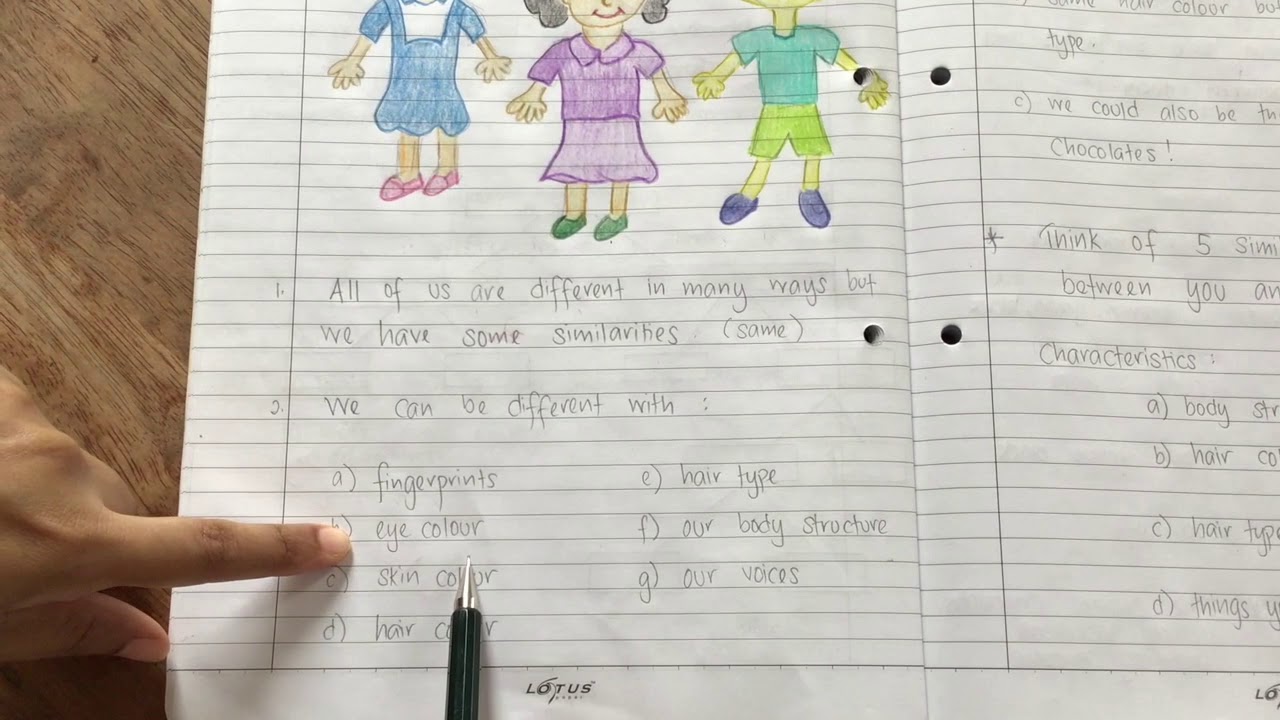 1. All of us are different in many ways but
we have some similarities. (same)
2. We can be different with :
a) fingerprints
b) eye colour
c) skin colour
d) hair colour
e) hair type
f) our body structure
g) our voices
LOTUS
same hair colour but
type.
c) we could also be
Chocolates!
* Think of 5
between you
Characteristics :
a) body
b) hair
c) hair type
d) things